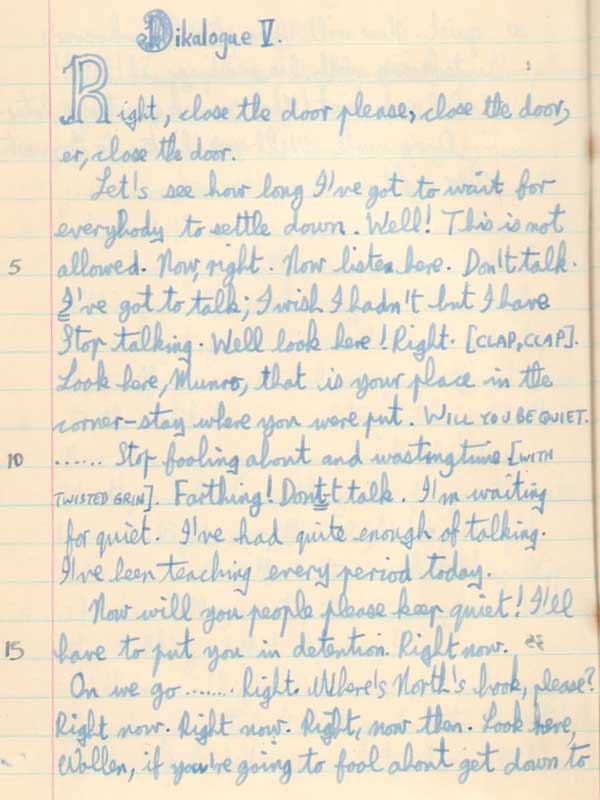 Dikalogue V.
Right, close the door please, close the door,
er, close the door.
Let's see how long I've got to wait for
everybody to settle down. Well! This is not
5 allowed. Now, right. Now listen here. Don't talk.
I've got to talk; I wish I hadn't but I have
Stop talking. Well look here! Right. [CLAP, CLAP].
Look here, Munro, that is your place in the
corner-stay where you were put. WILL YOU BE QUIET.
10 ...... Stop fooling about and wasting time [WITH
TWISTED GRIN]. Farthing! Don't talk. I'm waiting
for quiet. I've had quite enough of talking.
I've been teaching every period today.
Now will you people please keep quiet! I'll
15 have to put you in detention. Right now.
On we go ........ Right. Where's North's book, please?
Right now. Right now. Right, now then. Look here,
Wollen, if you're going to fool about get down to